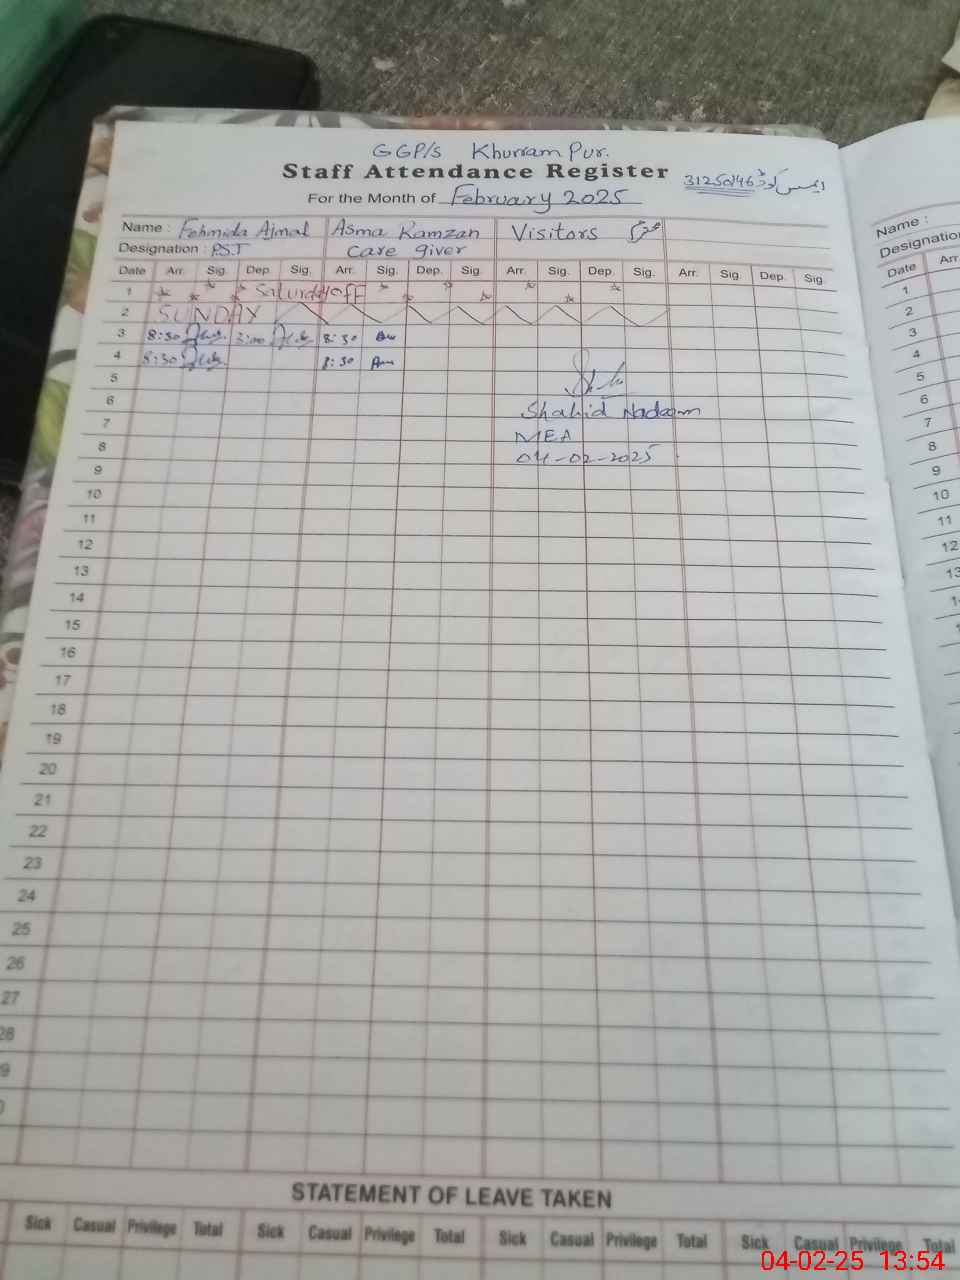 GGP/S Khurram Pur.
Staff Attendance Register
31250146 ایمس کوڈ
For the Month of February 2025
Name : Fehmida Ajmal Asma Ramzan Visitors
Designation : P.S.T Care giver
Date Arr. Sig. Dep. Sig. Arr. Sig. Dep. Sig. Arr. Sig. Dep. Sig. Arr. Sig. Dep. Sig.
1 Saturday OFF
2 SUNDAY
3 8:30 3:00 8:30
4 8:30 8:30
5
6
Shahid Nadeem
7
MEA
8
04-02-2025
9
10
11
12
13
14
15
16
17
18
19
20
21
22
23
24
25
26
27
28
9
STATEMENT OF LEAVE TAKEN
Sick Casual Privilege Total Sick Casual Privilege Total Sick Casual Privilege Total Sick Casual Privilege Total
Name :
Designatio
Date Arr
1
2
3
4
5
6
7
8
9
10
11
12
13
04-02-25 13:54